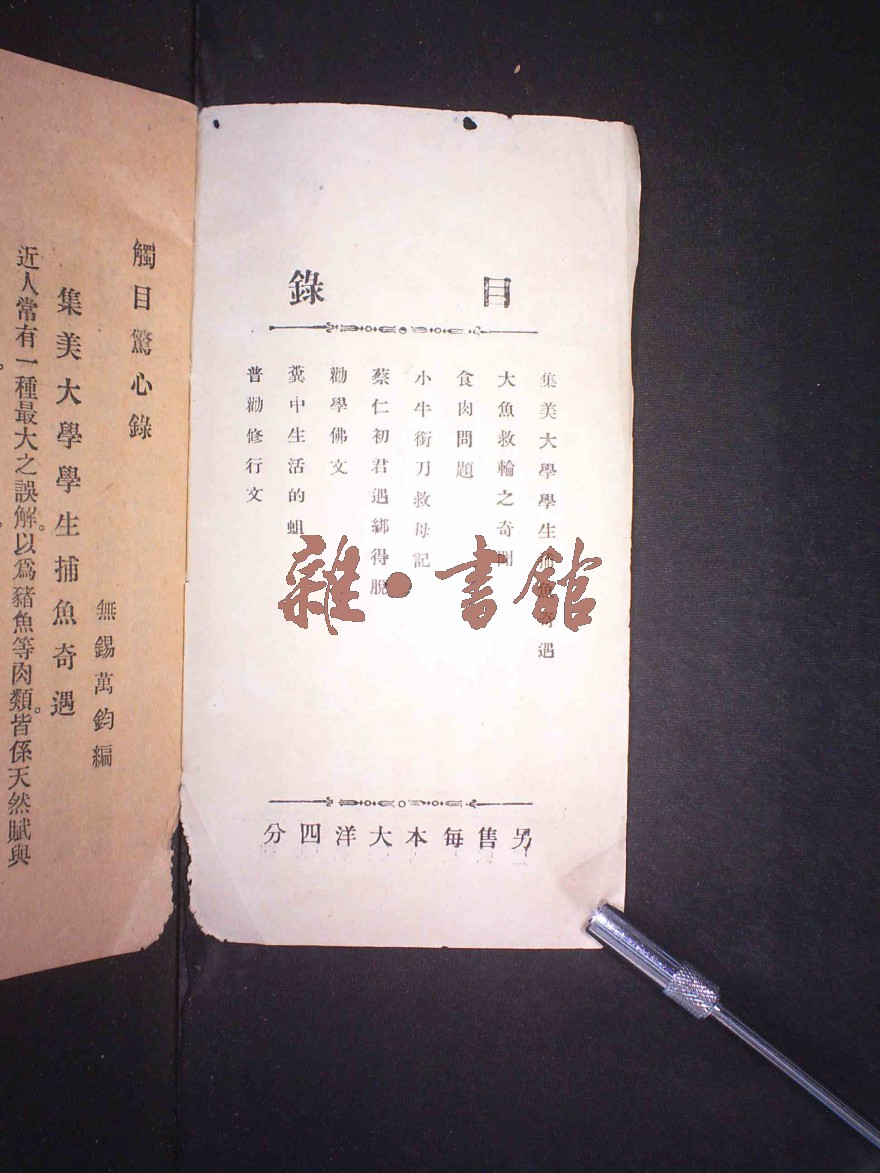 目錄
集美大學學生捕魚奇遇
大魚救輪之奇聞
食肉問題
小牛銜刀救母記
蔡仁初君遇綁得脫
勸學佛文
糞中生活的蛆
普勸修行文
另售每本大洋四分
雜·書館
觸目驚心錄
無錫萬鈞編
集美大學學生捕魚奇遇
近人常有一種最大之誤解。以爲豬魚等肉類。皆係天然賦與